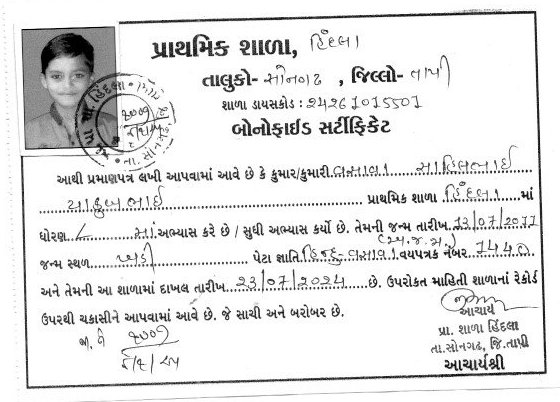 પ્રાથમિક શાળા, હિંદલા
તાલુકો- સોનગઢ, જિલ્લો- તાપી
શાળા ડાયસકોડ : 24261015501
બોનોફાઈડ સર્ટીફિકેટ
આથી પ્રમાણપત્ર લખી આપવામાં આવે છે કે કુમાર/કુમારી વસાવા સાહિલભાઈ
યાકુબભાઈ પ્રાથમિક શાળા હિંદલા માં
ધોરણ ૮ માં અભ્યાસ કરે છે / સુધી અભ્યાસ કર્યો છે. તેમની જન્મ તારીખ 13/07/2011
જન્મ સ્થળ પેટા જ્ઞાતિ હિન્દુ-વસાવા વયપત્રક નંબર 1440
અને તેમની આ શાળામાં દાખલ તારીખ 23/07/2024 છે. ઉપરોકત માહિતી શાળાના રેકોર્ડ
ઉપરથી ચકાસીને આપવામાં આવે છે. જે સાચી અને બરોબર છે.
આચાર્ય
પ્રા. શાળા હિંદલા
તા.સોનગઢ, જિ.તાપી
આચાર્યશ્રી